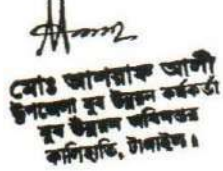 মোঃ আশরাফ আলী
উপজেলা যুব উন্নয়ন কর্মকর্তা
যুব উন্নয়ন অধিদপ্তর
কালিহাতি, টাঙ্গাইল।